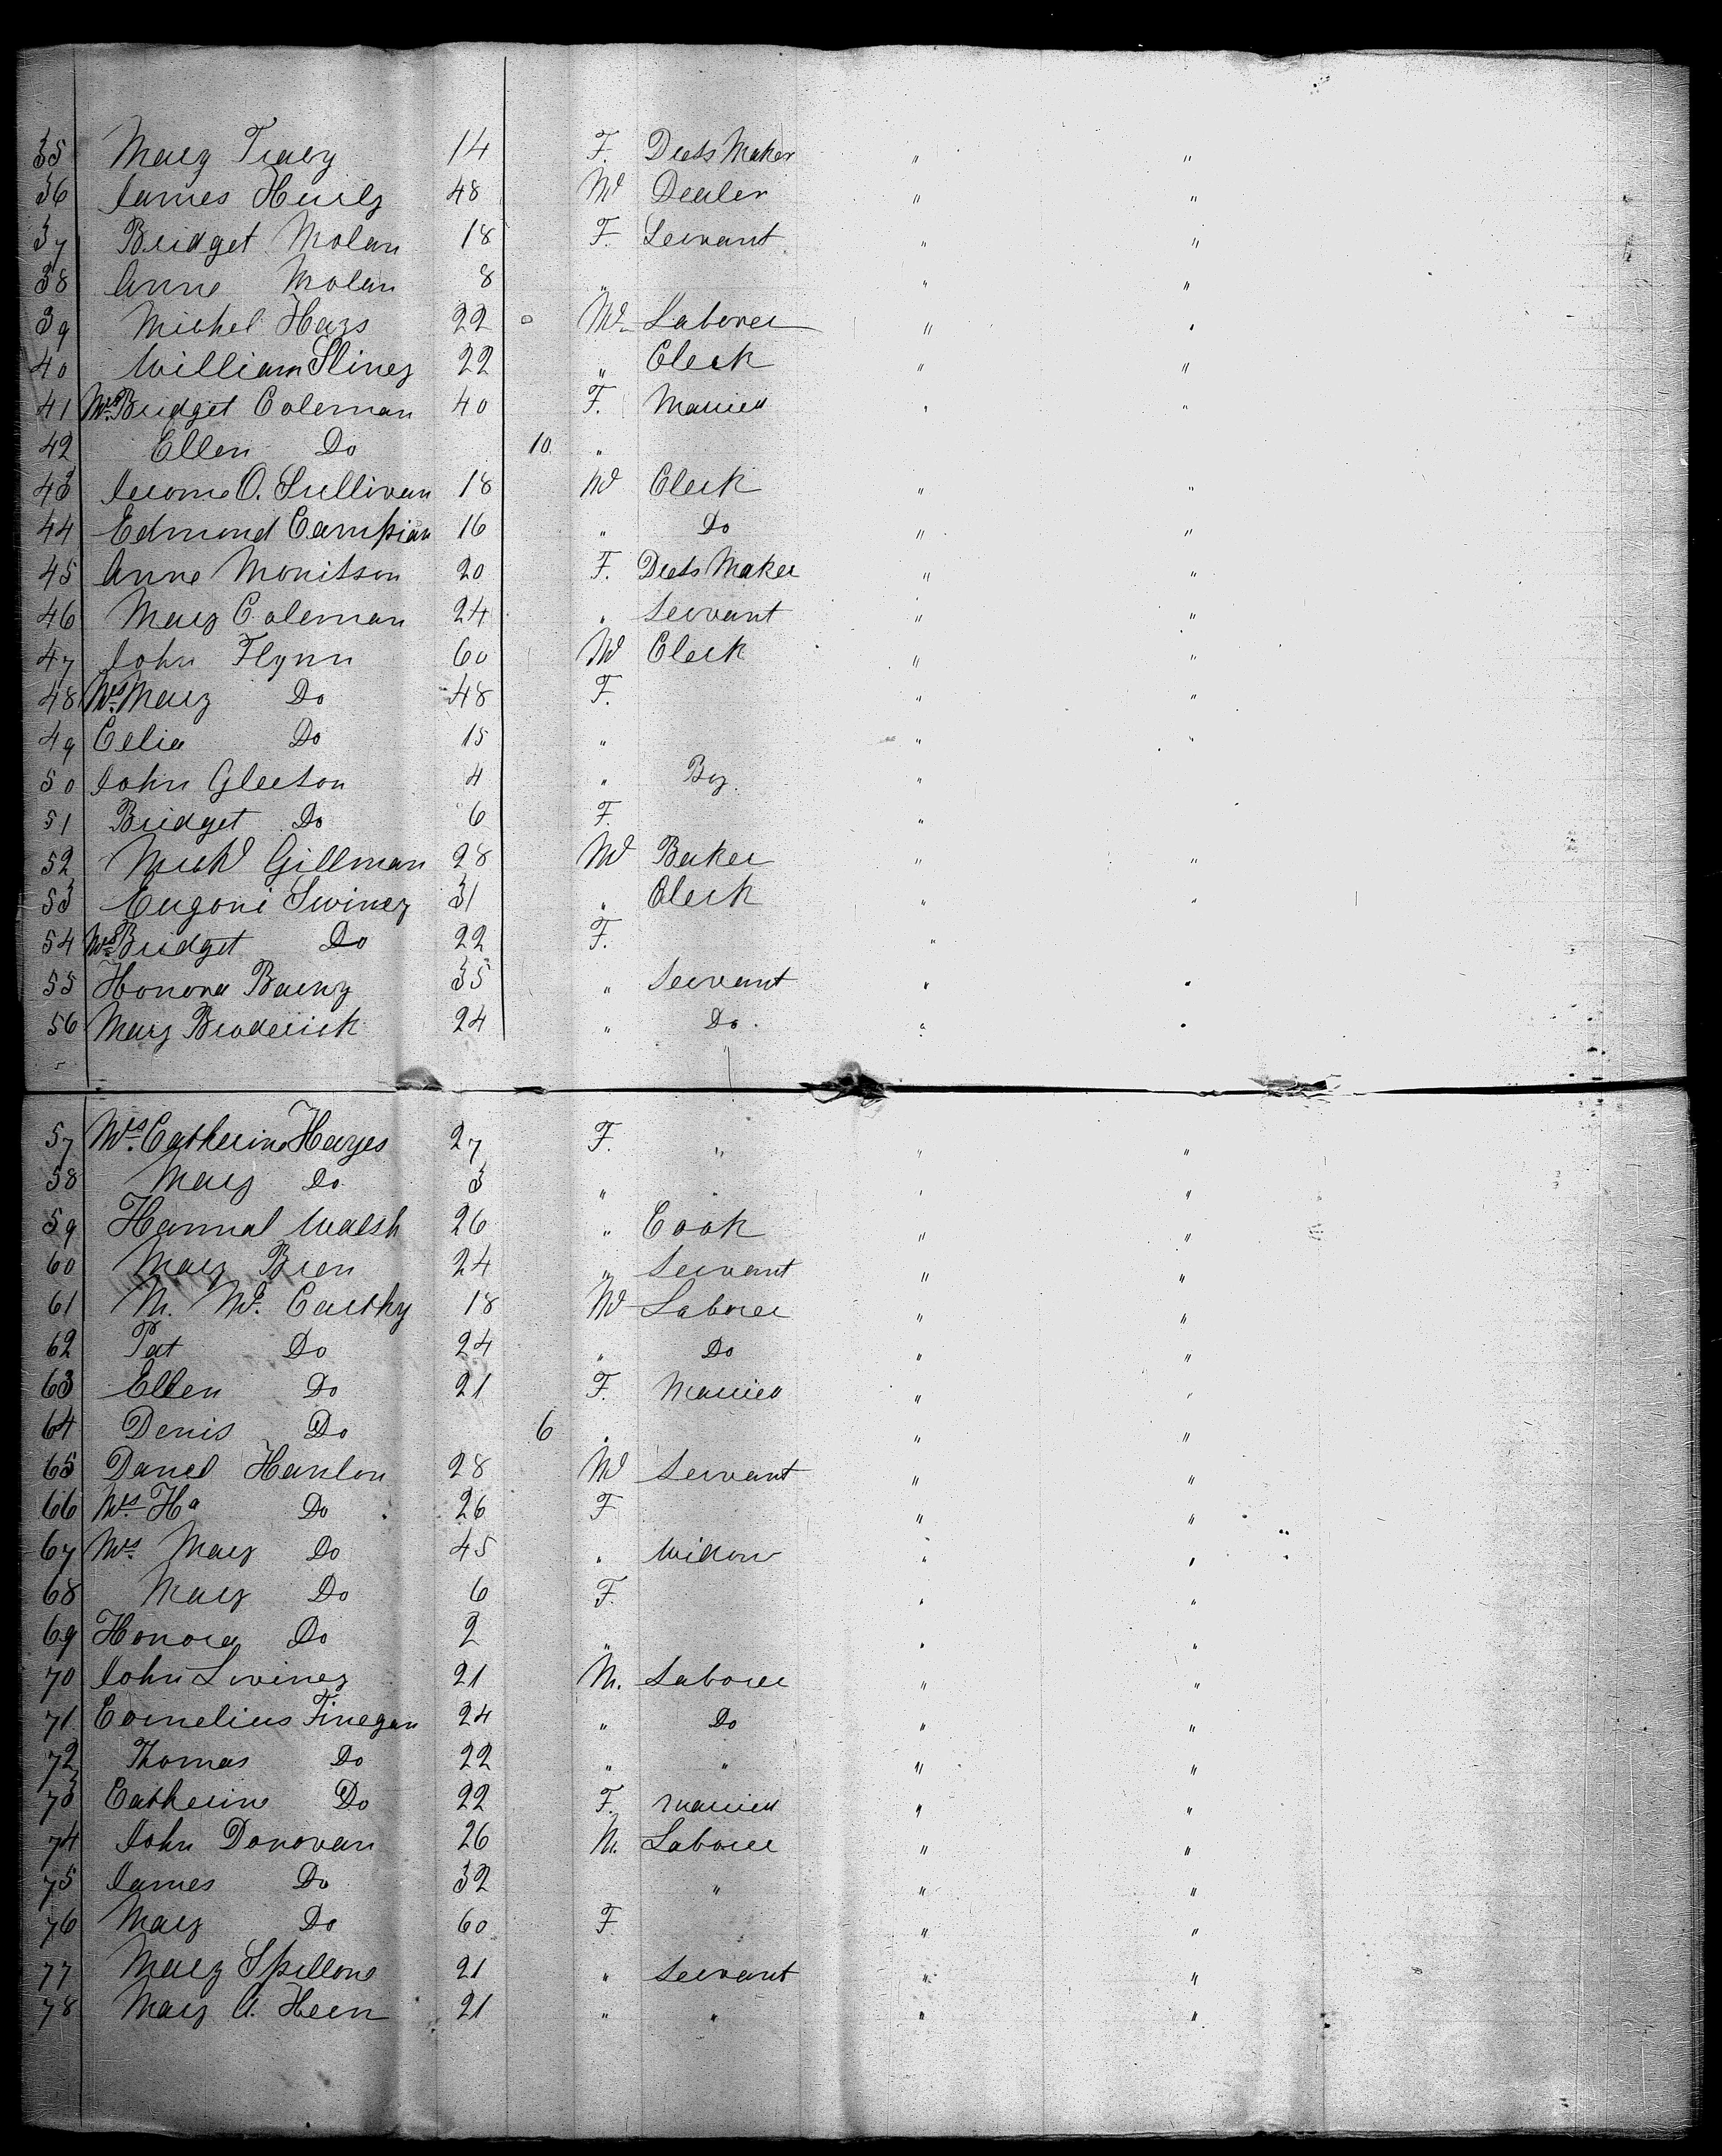 35 Mary Tracy 14 F. Dress Maker " "
36 James Hurly 48 M Dealer " "
37 Bridget Molan 18 F. Servant " "
38 Anne Molan 8 " " "
39 Michel Hays 22 M Laborer " "
40 William Sliney 22 " Clerk " "
41 Mrs Bridget Coleman 40 F. Married " "
42 Ellen Do 10 "
43 Jerome O. Sullivan 18 M Clerk " "
44 Edmond Campian 16 " Do " "
45 Anne Monitson 20 F. Dress Maker " "
46 Mary Coleman 24 " Servant " "
47 John Flynn 60 M Clerk " "
48 Mrs Mary Do 48 F. " "
49 Celia Do 15 " " "
50 John Gleeson 4 " Boy. "
51 Bridget Do 6 F. "
52 Michl Gillman 28 M Baker " "
53 Eugone Swiney 31 " Clerk " "
54 Mrs Bridget Do 22 F. "
55 Honora Barny 35 " Servant " "
56 Mary Broderick 24 " Do. " "
57 Mrs. Catherine Hayes 27 F. " " "
58 Mary Do 3 " " "
59 Hannah Walsh 26 " Cook " "
60 Mary Bren 24 " Servant " "
61 M. Mc. Carthy 18 M Laborer " "
62 Pat Do 24 " Do " "
63 Ellen Do 21 F. Married " "
64 Denis Do 6 " " "
65 Daniel Hanlon 28 M Servant " "
66 Mrs Ha Do 26 F " "
67 Mrs. Mary Do 45 " Widow " "
68 Mary Do 6 F. " "
69 Honora Do 2 " " "
70 John Swiney 21 M. Laborer " "
71 Cornelius Finegan 24 " Do " "
72 Thomas Do 22 " " " "
73 Catherine Do 22 F. Married " "
74 John Donovan 26 M. Laborer " "
75 James Do 32 " " "
76 Mary Do 60 F. " "
77 Mary Spillone 21 " Servant " "
78 Mary A. Heen 21 " " " "